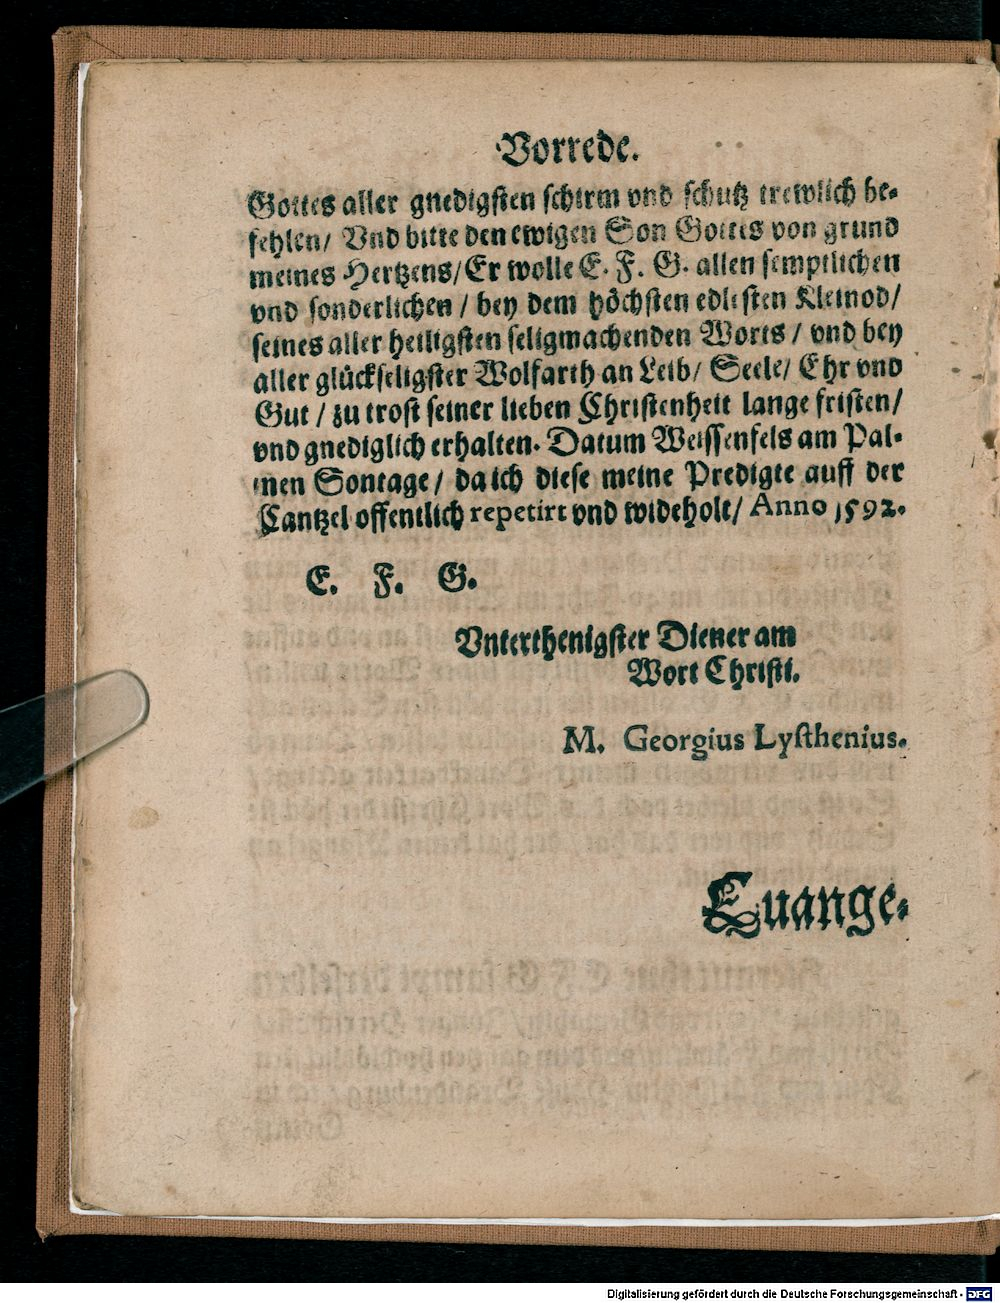 Vorrede.
Gottes aller gnedigsten schirm vnd schutz trewlich be-
fehlen/ Vnd bitte den ewigen Son Gottes von grund
meines Hertzens/ Er wolle E. F. G. allen semptlichen
vnd sonderlichen / bey dem höchsten edlesten Kleinod/
seines aller heiligsten seligmachenden Worts / vnd bey
aller glückseligster Wolfarth an Leib/ Seele/ Ehr vnd
Gut / zu trost seiner lieben Christenheit lange fristen/
vnd gnediglich erhalten. Datum Weissenfels am Pal-
men Sontage/ da ich diese meine Predigte auff der
Cantzel offentlich repetirt vnd wideholt/ Anno 1592.
E. F. G.
Vnterthenigster Diener am
Wort Christi.
M. Georgius Lysthenius.
Euange-
Digitalisierung gefördert durch die Deutsche Forschungsgemeinschaft - DFG